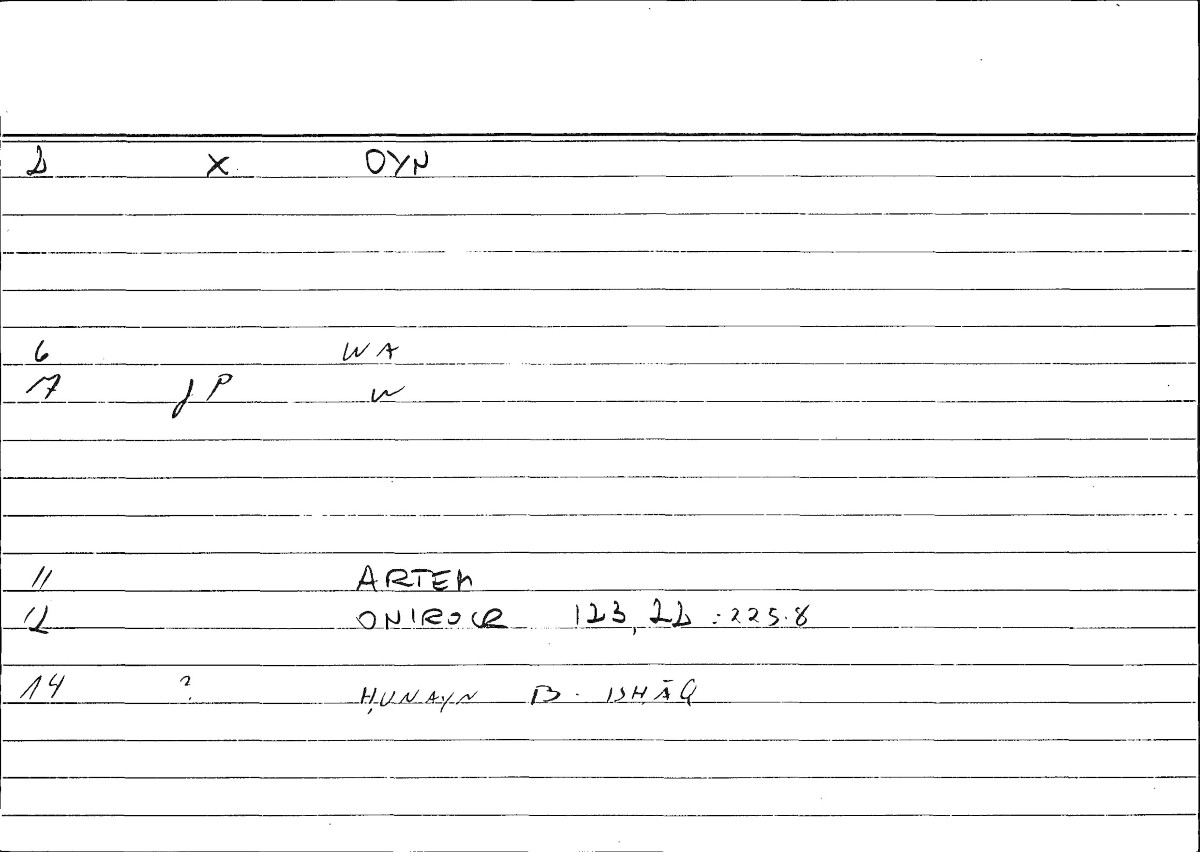 2 X OYN
6 WA
7 jP W
11 ARTEM
12 ONIROCR 123,22 : 225.8
14 ? ḤUNAYN B. ISḤĀQ